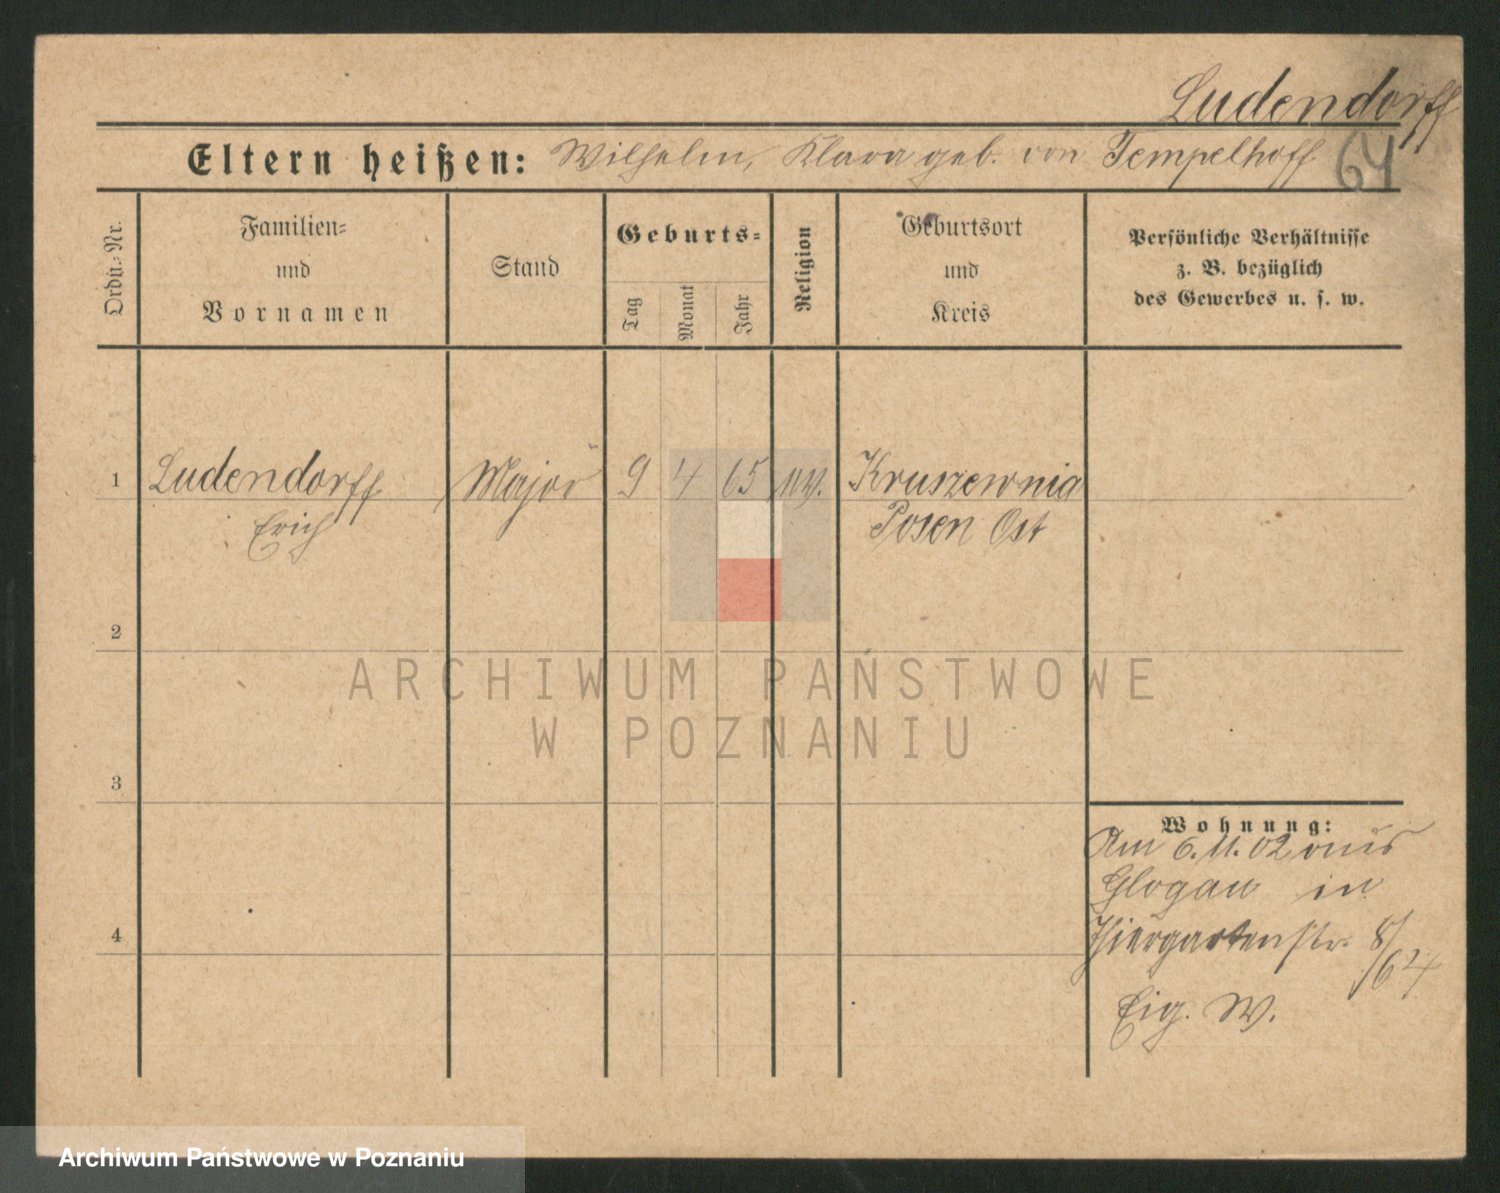 Ludendorff
Eltern heißen: Wilhelm, Klara geb. von Tempelhoff 64
Ordn.-Nr.
Familien-
und
Vornamen
Stand
Geburts-
Tag
Monat
Jahr
Religion
Geburtsort
und
Kreis
Persönliche Verhältnisse
z. B. bezüglich
des Gewerbes u. s. w.
1 Ludendorff Major 9 4 65 ev. Kruszewnia
Erich Posen Ost
2
ARCHIWUM PAŃSTWOWE
W POZNANIU
3
Wohnung:
Am 6.11.02 aus
Glogau in
4
Thiergartenstr. 8/
64
Eig. W.
Archiwum Państwowe w Poznaniu